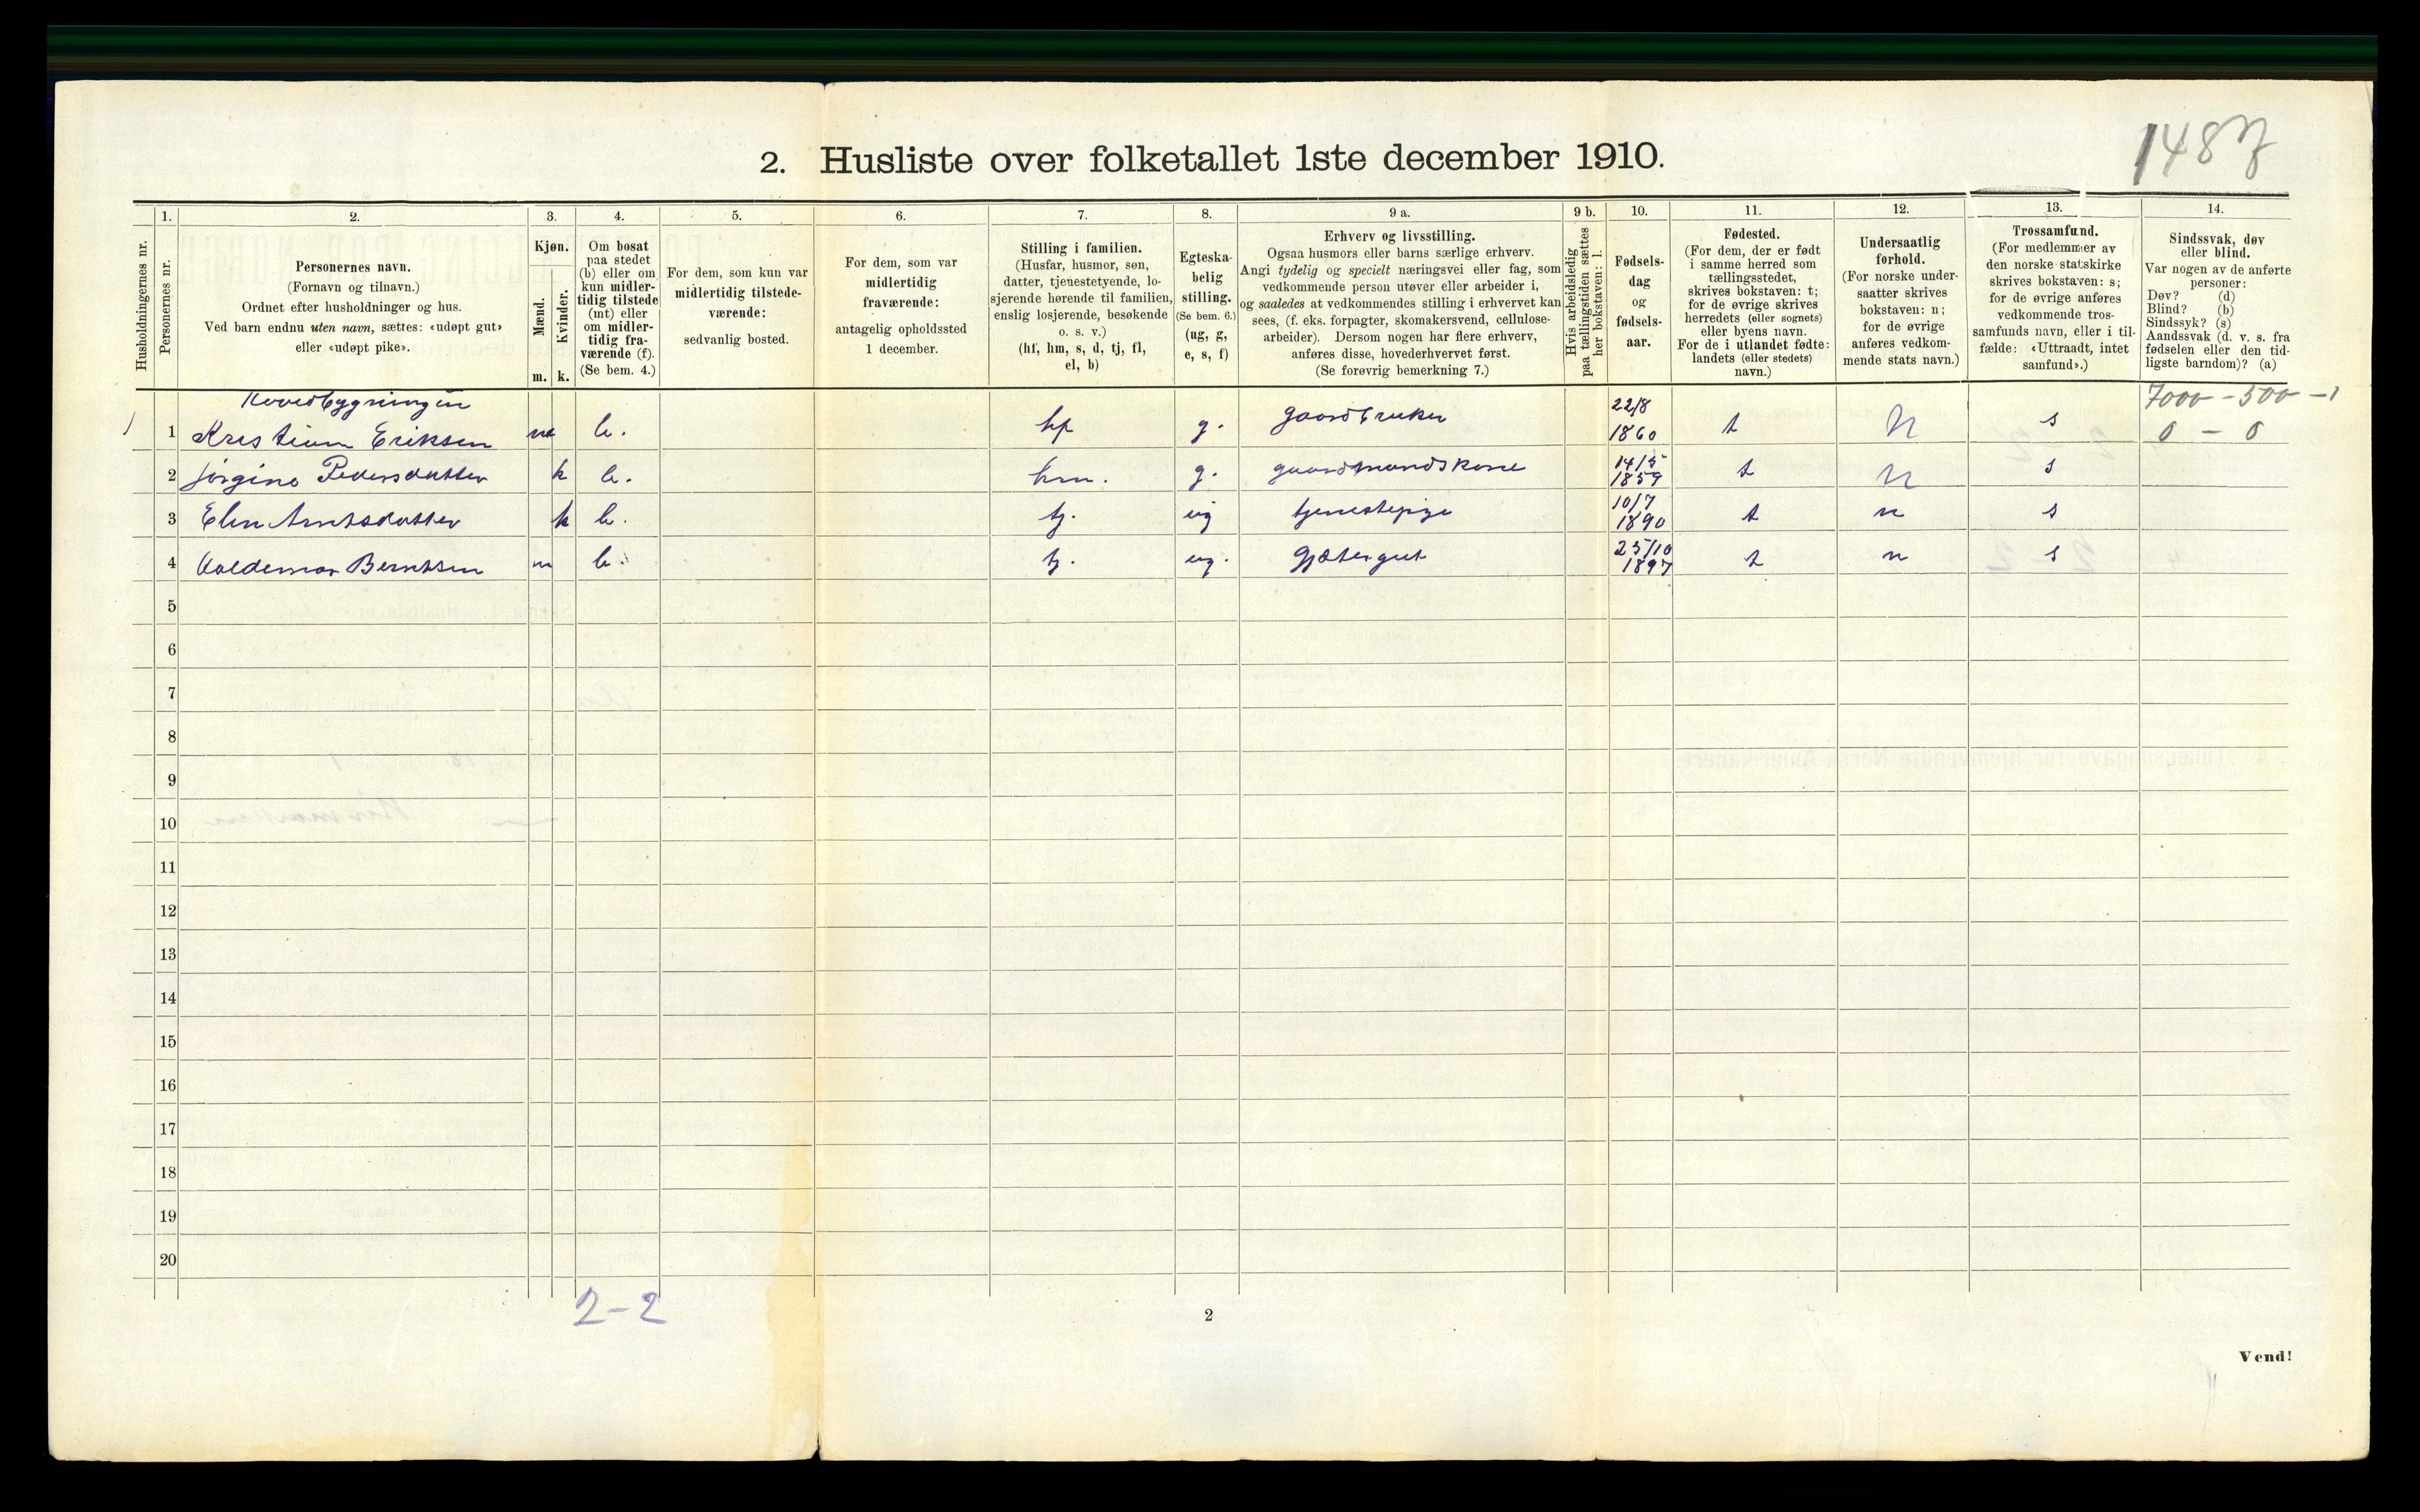 1487
2. Husliste over folketallet 1ste december 1910.
Husholdningernes nr.
1.
Personernes nr.
2.
Personernes navn.
(Fornavn og tilnavn.)
Ordnet efter husholdninger og hus.
Ved barn endnu uten navn, sættes: «udøpt gut»
eller «udøpt pike».
3.
Kjøn.
Mænd.
Kvinder.
m. k.
4.
Om bosat
paa stedet
(b) eller om
kun midler-
tidig tilstede
(mt) eller
om midler-
tidig fra-
værende (f).
(Se bem. 4.)
5.
For dem, som kun var
midlertidig tilstede-
værende:
sedvanlig bosted.
6.
For dem, som var
midlertidig
fraværende:
antagelig opholdssted
1 december.
7.
Stilling i familien.
(Husfar, husmor, søn,
datter, tjenestetyende, lo-
sjerende hørende til familien,
enslig losjerende, besøkende
o. s. v.)
(hf, hm, s, d, tj, fl,
el, b)
8.
Egteska-
belig
stilling.
(Se bem. 6.)
(ug, g,
e, s, f)
9 a.
Erhverv og livsstilling.
Ogsaa husmors eller barns særlige erhverv.
Angi tydelig og specielt næringsvei eller fag, som
vedkommende person utøver eller arbeider i,
og saaledes at vedkommendes stilling i erhvervet kan
sees, (f. eks. forpagter, skomakersvend, cellulose-
arbeider). Dersom nogen har flere erhverv,
anføres disse, hovederhvervet først.
(Se forøvrig bemerkning 7.)
9 b.
Hvis arbeidsledig
paa tællingstiden sættes
her bokstaven: l.
10.
Fødsels-
dag
og
fødsels-
aar.
11.
Fødested.
(For dem, der er født
i samme herred som
tællingsstedet,
skrives bokstaven: t;
for de øvrige skrives
herredets (eller sognets)
eller byens navn.
For de i utlandet fødte:
landets (eller stedets)
navn.)
12.
Undersaatlig
forhold.
(For norske under-
saatter skrives
bokstaven: n;
for de øvrige
anføres vedkom-
mende stats navn.)
13.
Trossamfund.
(For medlemmer av
den norske statskirke
skrives bokstaven: s;
for de øvrige anføres
vedkommende tros-
samfunds navn, eller i til-
fælde: «Uttraadt, intet
samfund».)
14.
Sindssvak, døv
eller blind.
Var nogen av de anførte
personer:
Døv? (d)
Blind? (b)
Sindssyk? (s)
Aandssvak (d. v. s. fra
fødselen eller den tid-
ligste barndom)? (a)
Hovedbygningen 7000 - 500 - 1
1 1 Kristian Eriksen m b. hf g. gaardbruker 22/8 1860 t N s 0 - 0
2 Jørgine Pedersdatter k b. hm. g. gaardmandskone 14/5 1859 t N s
3 Elen Arntsdatter k b. tj. ug tjenestepige 10/7 1890 t n s
4 Valdemar Berntsen m b. tj. ug. Gjætergut 25/10 1897 t n s
5
6
7
8
9
10
11
12
13
14
15
16
17
18
19
20
2-2
2
Vend!